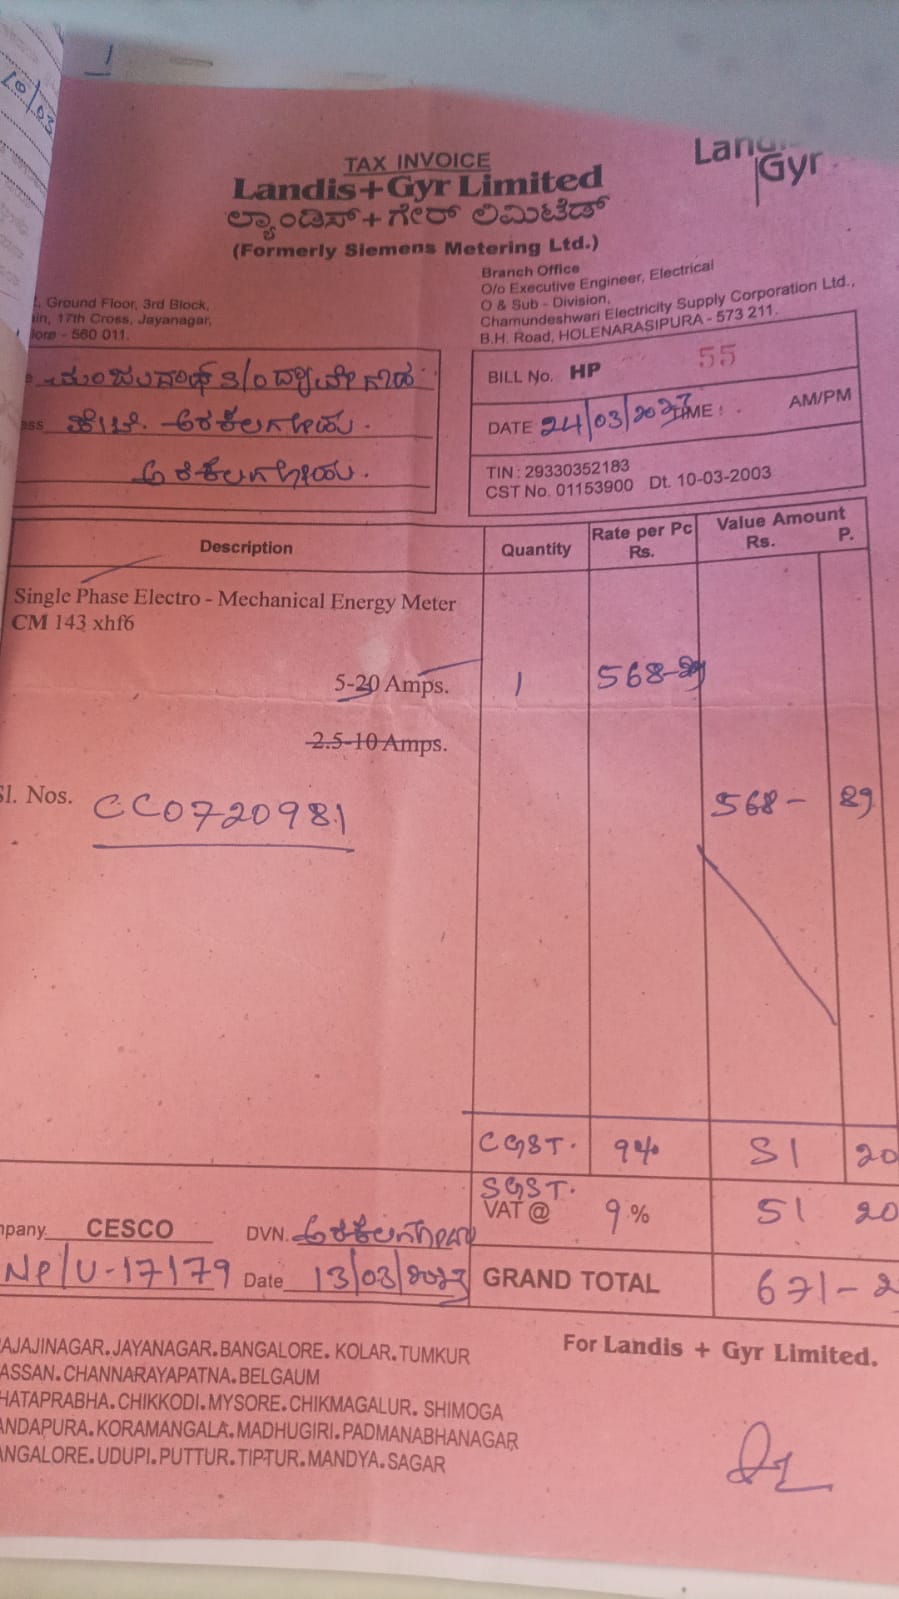 10/03
1
Landis
Gyr
TAX INVOICE
Landis+Gyr Limited
ಲ್ಯಾಂಡಿಸ್+ಗೇರ್ ಲಿಮಿಟೆಡ್
(Formerly Siemens Metering Ltd.)
Ground Floor, 3rd Block,
17th Cross, Jayanagar,
560 011.
Branch Office
O/o Executive Engineer, Electrical
O & Sub - Division,
Chamundeshwari Electricity Supply Corporation Ltd.,
B.H. Road, HOLENARASIPURA - 573 211.
S/o
BILL No. HP 55
DATE 24/03/2023 TIME : AM/PM
TIN : 29330352183
CST No. 01153900 Dt. 10-03-2003
Description Quantity Rate per Pc Rs. Value Amount Rs. P.
Single Phase Electro - Mechanical Energy Meter
CM 143 xhf6
5-20 Amps. 1 568-89
2.5-10 Amps.
Sl. Nos. CC0720981 568- 89
CGST. 9% 51 20
SGST.
VAT @ 9 % 51 20
CESCO DVN.
17179 Date 13/03/2023 GRAND TOTAL 671-2
JAYANAGAR. BANGALORE. KOLAR. TUMKUR
CHANNARAYAPATNA. BELGAUM
CHIKKODI. MYSORE. CHIKMAGALUR. SHIMOGA
KORAMANGALA. MADHUGIRI. PADMANABHANAGAR
UDUPI. PUTTUR. TIPTUR. MANDYA. SAGAR
For Landis + Gyr Limited.